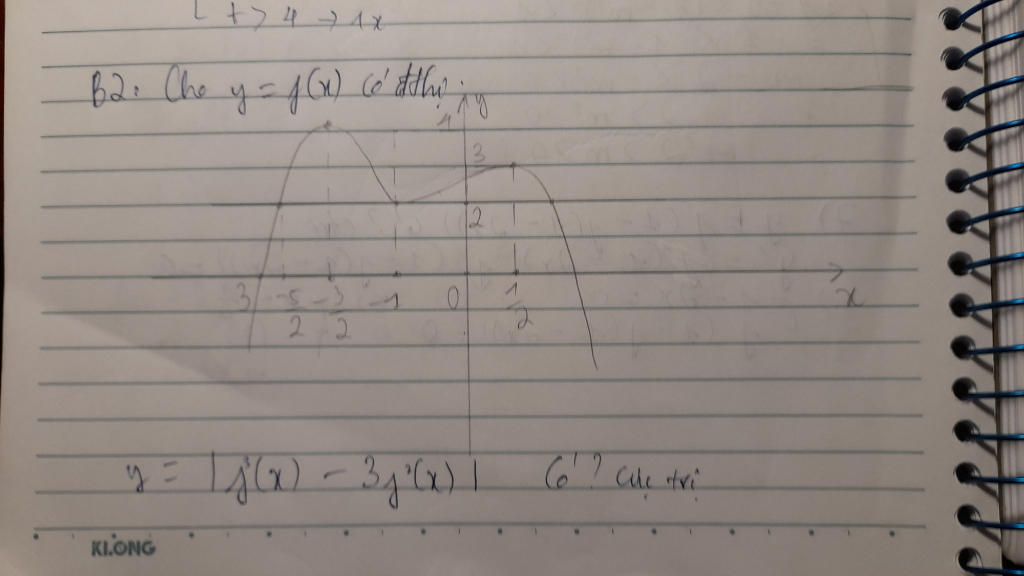 t > 4 → 1x
B2: Cho y = f(x) có đthị.
y
4
3
2
3 -5/2 -3/2 -1 0 1/2 x
y = |f³(x) - 3f²(x)| Có ? cực trị
KLONG